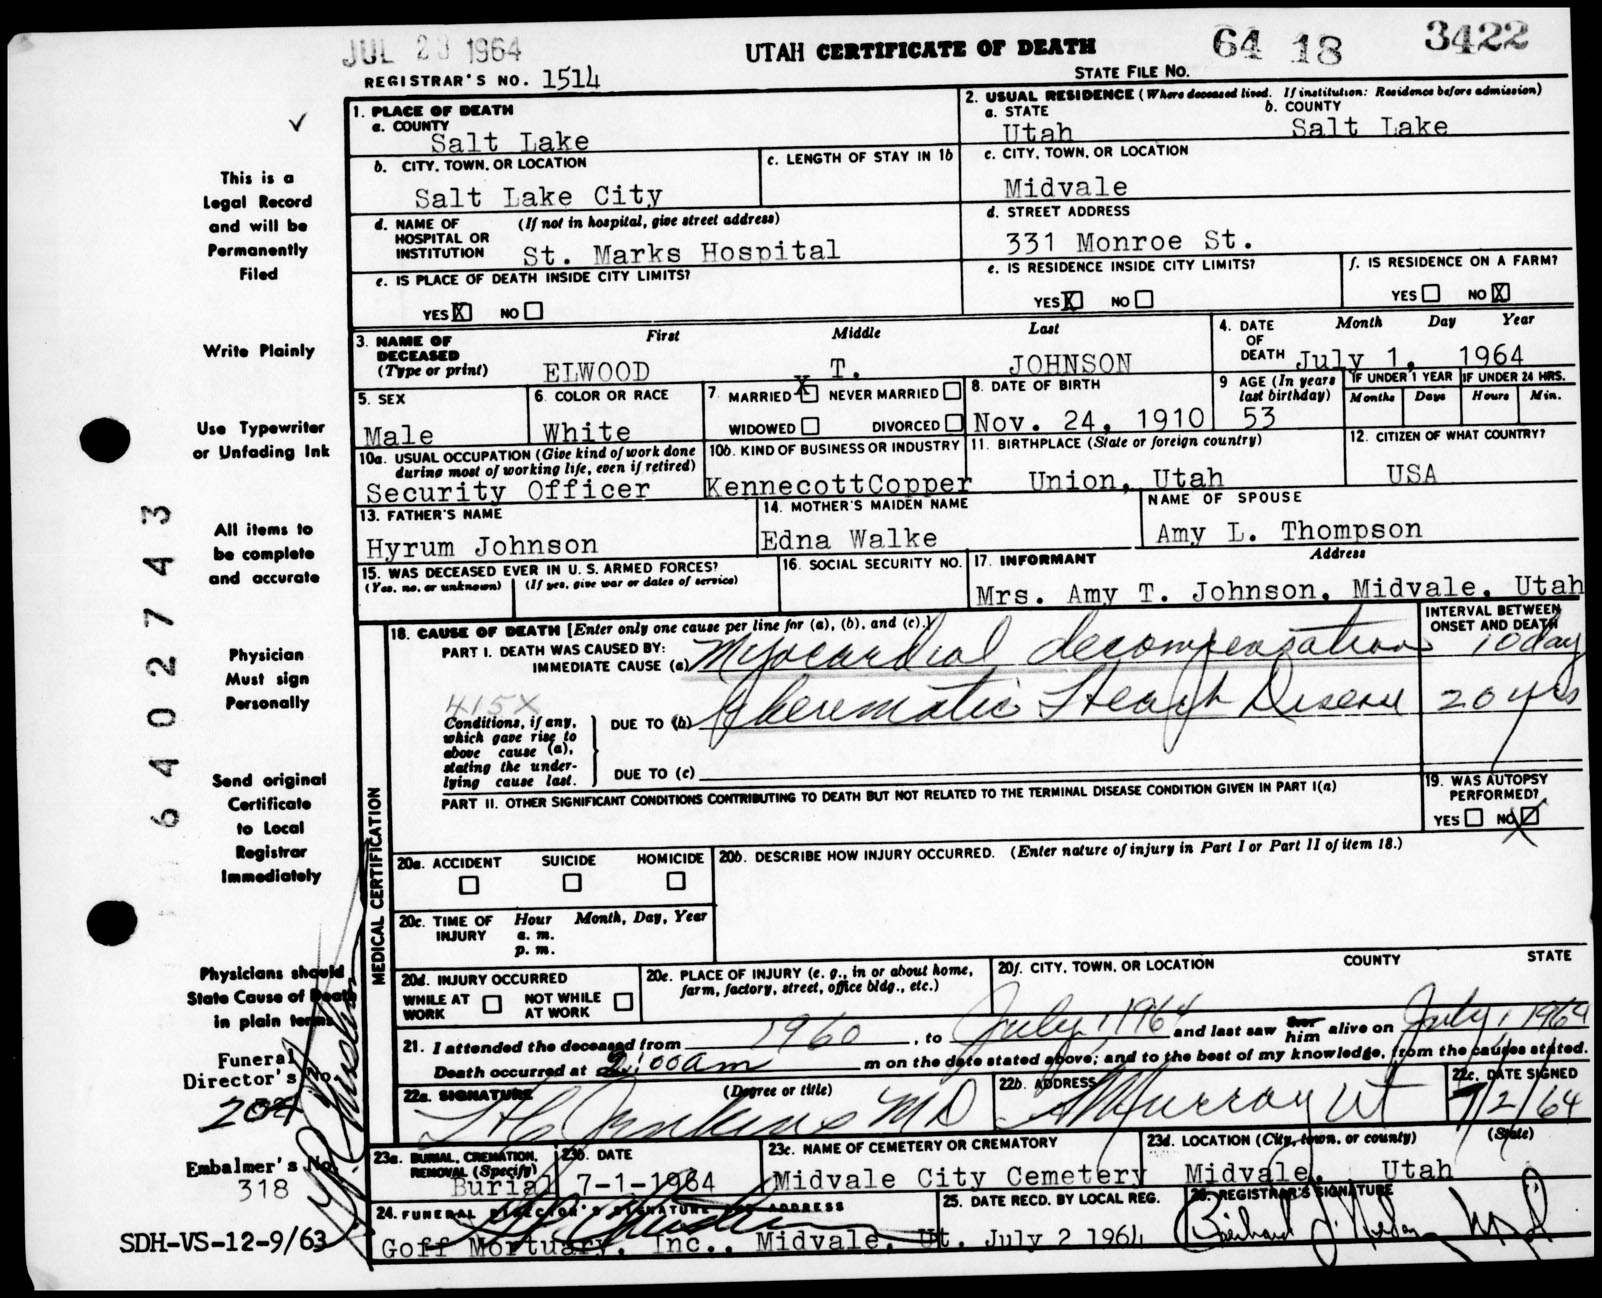 JUL 23 1964
UTAH CERTIFICATE OF DEATH
64 18 3422
REGISTRAR'S NO. 1514
STATE FILE NO.
1. PLACE OF DEATH
a. COUNTY
Salt Lake
2. USUAL RESIDENCE (Where deceased lived. If institution: Residence before admission)
a. STATE
Utah
b. COUNTY
Salt Lake
b. CITY, TOWN, OR LOCATION
Salt Lake City
c. LENGTH OF STAY IN 1b
c. CITY, TOWN, OR LOCATION
Midvale
d. NAME OF HOSPITAL OR INSTITUTION (If not in hospital, give street address)
St. Marks Hospital
d. STREET ADDRESS
331 Monroe St.
e. IS PLACE OF DEATH INSIDE CITY LIMITS?
YES X NO
e. IS RESIDENCE INSIDE CITY LIMITS?
YES X NO
f. IS RESIDENCE ON A FARM?
YES NO X
3. NAME OF DECEASED (Type or print)
First Middle Last
ELWOOD T. JOHNSON
4. DATE OF DEATH
Month Day Year
July 1, 1964
5. SEX
Male
6. COLOR OR RACE
White
7. MARRIED X NEVER MARRIED
WIDOWED DIVORCED
8. DATE OF BIRTH
Nov. 24, 1910
9 AGE (In years last birthday)
53
IF UNDER 1 YEAR
Months Days
IF UNDER 24 HRS.
Hours Min.
10a. USUAL OCCUPATION (Give kind of work done during most of working life, even if retired)
Security Officer
10b. KIND OF BUSINESS OR INDUSTRY
KennecottCopper
11. BIRTHPLACE (State or foreign country)
Union, Utah
12. CITIZEN OF WHAT COUNTRY?
USA
13. FATHER'S NAME
Hyrum Johnson
14. MOTHER'S MAIDEN NAME
Edna Walke
NAME OF SPOUSE
Amy L. Thompson
15. WAS DECEASED EVER IN U. S. ARMED FORCES?
(Yes, no, or unknown) (If yes, give war or dates of service)
16. SOCIAL SECURITY NO.
17. INFORMANT Address
Mrs. Amy T. Johnson, Midvale, Utah
MEDICAL CERTIFICATION
18. CAUSE OF DEATH [Enter only one cause per line for (a), (b), and (c).]
INTERVAL BETWEEN ONSET AND DEATH
PART I. DEATH WAS CAUSED BY:
IMMEDIATE CAUSE (a) Myocardial decompensation 10 day
415X
Conditions, if any, which gave rise to above cause (a), stating the underlying cause last.
DUE TO (b) Rheumatic Heart Disease 20 yrs
DUE TO (c)
PART II. OTHER SIGNIFICANT CONDITIONS CONTRIBUTING TO DEATH BUT NOT RELATED TO THE TERMINAL DISEASE CONDITION GIVEN IN PART I(a)
19. WAS AUTOPSY PERFORMED?
YES NO X
20a. ACCIDENT SUICIDE HOMICIDE
20b. DESCRIBE HOW INJURY OCCURRED. (Enter nature of injury in Part I or Part II of item 18.)
20c. TIME OF INJURY
Hour Month, Day, Year
a. m.
p. m.
20d. INJURY OCCURRED
WHILE AT WORK NOT WHILE AT WORK
20e. PLACE OF INJURY (e. g., in or about home, farm, factory, street, office bldg., etc.)
20f. CITY, TOWN, OR LOCATION COUNTY STATE
21. I attended the deceased from 1960, to July 1, 1964 and last saw her him alive on July 1, 1964
Death occurred at 2:00am m on the date stated above; and to the best of my knowledge, from the causes stated.
22a. SIGNATURE (Degree or title)
H C Jenkins MD
22b. ADDRESS
Murray Ut
22c. DATE SIGNED
7/2/64
23a. BURIAL, CREMATION, REMOVAL (Specify)
Burial
23b. DATE
7-1-1964
23c. NAME OF CEMETERY OR CREMATORY
Midvale City Cemetery
23d. LOCATION (City, town, or county) (State)
Midvale, Utah
24. FUNERAL DIRECTOR'S SIGNATURE ADDRESS
Goff Mortuary, Inc., Midvale, Ut.
25. DATE RECD. BY LOCAL REG.
July 2 1964
26. REGISTRAR'S SIGNATURE
This is a
Legal Record
and will be
Permanently
Filed
Write Plainly
Use Typewriter
or Unfading Ink
All items to
be complete
and accurate
Physician
Must sign
Personally
Send original
Certificate
to Local
Registrar
Immediately
Physicians should
State Cause of Death
in plain terms
Funeral
Director's No.
204
Embalmer's No.
318
SDH-VS-12-9/63
6402743